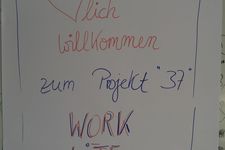 lich
willkommen
zum Projekt "37"
WORK